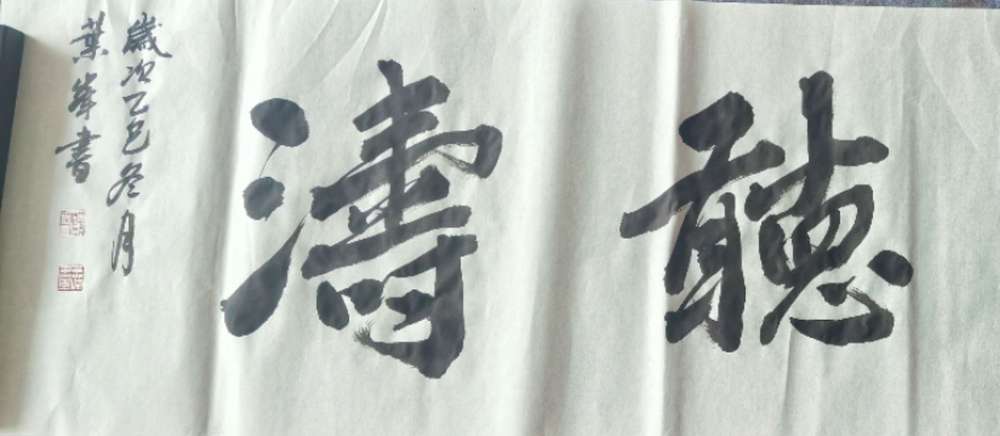 聽濤
歲次乙巳冬月
葉峰書